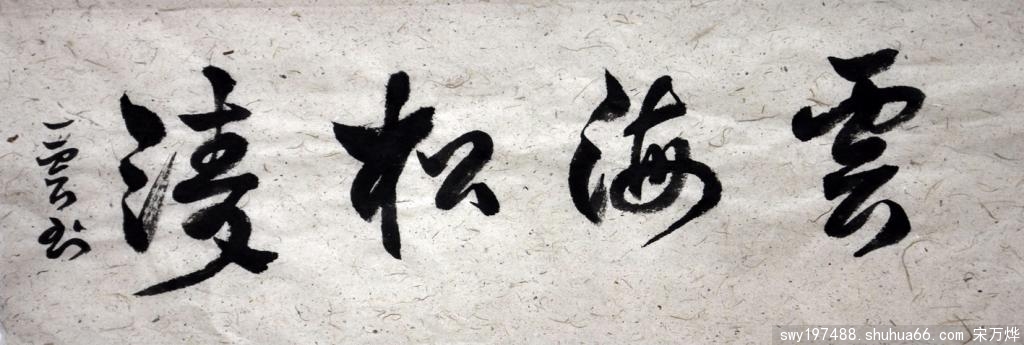 雲海松濤
swy197488.shuhua66.com 宋万烨